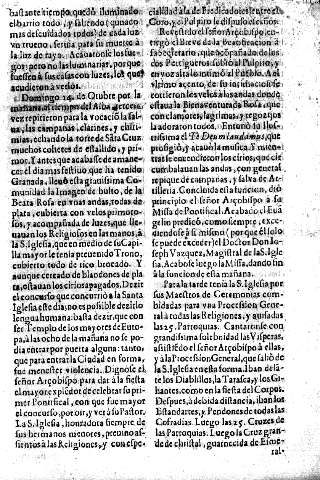 bastante tiempo, quedò iluminado
todo el barrio todo, y saliendo (quando
mas descuidados todos) de cada luz
un trueno, seruia para su muerte à
la luz de rayo. Acabaronse los fue-
gos: pero no las luminarias, por que
fuessen à sus casas con luzes, los que
acudieron à verlos.
Domingo 14. de Octubre por la
mañana al tiempo del Alba, tercera
vez repitieron para la vocacion la sal-
ua, las campanas, clarines, y chiri-
mias, echando la torre de Sãta Cruz
muchos cohetes de estallido, y pri-
mor. Y antes que acabasse de amane-
cer el dia mas festiuo que ha tenido
Granada, lleuò esta grauissima Co-
munidad la Imagen de bulto, de la
Beata Rosa en vnas andas, todas de
plata, cubierta con velos primoro-
sos, y acompañada de luzes, que lle-
uauan los Religiosos en las manos, à
la S. Iglesia, que en medio de su Capi-
lla mayor le tenia preuenido Trono,
cubierto todo de rico brocado. Y
aunque cercado de blandones de pla-
ta, estauan los cirios apagados. Dezir
el concurso que concurriò à la Santa
Iglesia este dia, no es possible dezirlo
lengua humana: basta dezir, que con
ser Templo de los mayores de Euro-
pa, à las ocho de la mañana no se po-
dia entrar por puerta alguna: tanto,
que para entrar la Ciudad en forma,
fue menester violencia. Dignose el
señor Arçobispo para dar à la fiesta
el mayor explēdor de celebrar su pri-
mer Pontifical, con que fue mayor
el concurso, por oir, y ver à su Pastor.
La S. Iglesia, honradora siempre de
sus hermanos menores, preuino as-
sientos à las Religiones, y con espe-
cialidad à la de Predicadores entre el
Coro, y el Pulpito se dispuso este sitio.
Reuestido el señor Arçobispo, en-
tregò el Breue de la Beatificacion à
su Secretario, que acompañado de los
Pertigueros subiò al Pulpito, y
en voz alta lo intimò al Pueblo. A el
vltimo acento, de su intimacion se
corrieron los velos à las andas donde
estaua la Bienauenturada Rosa, que
con clamores, lagrimas, y regozijos
la adoraron todos. Entonò su Ilus-
trissima el Te Deum laudamus, que
prosiguiò, y acauò la musica. Y mien-
tras se encendieron los cirios, que cir-
cumbalauan las andas, con general
repique de campanas, y salua de Ar-
tilleria. Concluida esta funcion, diò
principio el señor Arçobispo à su
Missa de Pontifical. Acabado el Euã-
gelio predicò, como siempre, exce-
diendose à si mismo (porque èl solo
se puede exceder) el Doctor Don Io-
seph Vazquez, Magistral de la S. Igle-
sia. Acabòse luego la Missa, dando fin
à la funcion de esta mañana.
Para la tarde tenia la S. Iglesia por
sus Maestros de Ceremonias com-
bidadas para vna Procession Gene-
ral à todas las Religiones, y ausadas
las 25. Parroquias. Cantaronse con
grandissima solemnidad las Visperas,
assistiēdo el señor Arçobispo à ellas,
y à la Procession General, que saliò de
la S. Iglesia en esta forma. Iban delã-
te los Diablillos, la Tarasca, y los Gi-
gantes, como en la fiesta del Corpus.
Despues, à debida distancia, iban los
Estandartes, y Pendones de todas las
Cofradias. Luego las 25. Cruzes de
las Parroquias. Luego la Cruz gran-
de de christal, guarnecida de Esme-
ral-